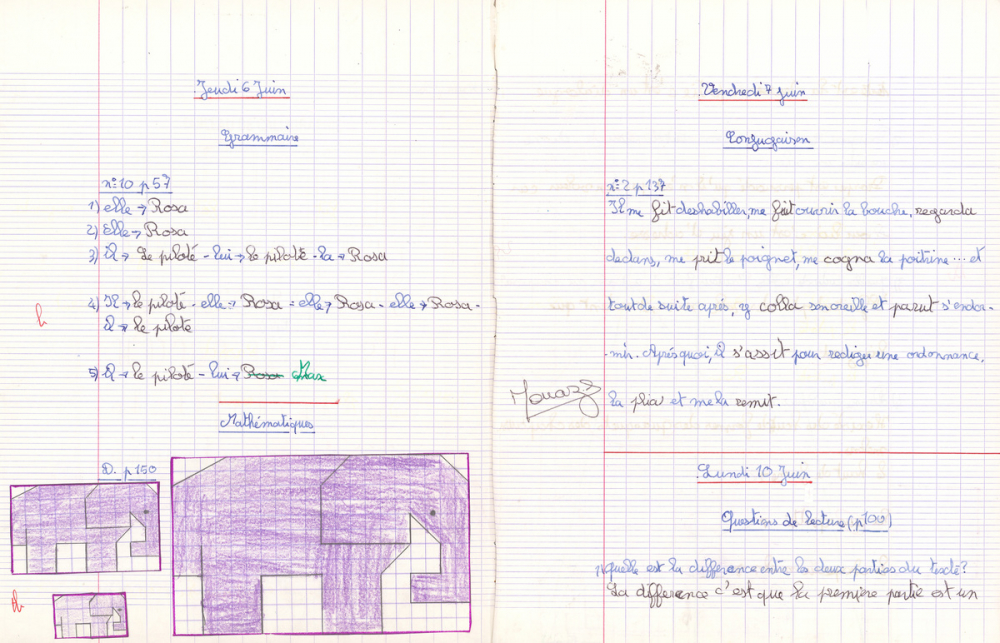 Jeudi 6 Juin
Grammaire
n°10 p 57
1) elle → Rosa
2) elle → Rosa
3) Il → Le pilote - lui → le pilote - la → Rosa
4) Il → le pilote - elle → Rosa - elle → Rosa - elle → Rosa -
Il → le pilote
5) Il → le pilote - lui → Rosa Max
Mathématiques
D. p 150
Vendredi 7 Juin
Conjugaison
n°2 p 137
Il me fit deshabiller, me fit ouvrir la bouche, regarda
dedans, me prit le poignet, me cogna la poitrine ... et
tout de suite après, y colla son oreille et parut s'endor-
-mir. Après quoi, il s'assit pour rediger une ordonnance,
la plia et me la remit.
Lundi 10 Juin
Questions de lecture (p100)
1) quelle est la difference entre les deux parties du texte?
La différence c'est que la première partie est un